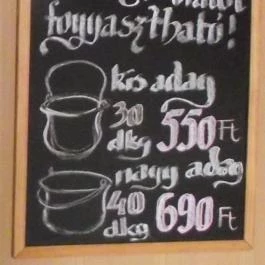 fogyasztható!
kis adag
30 dkg 550 Ft
nagy adag
40 dkg 690 Ft